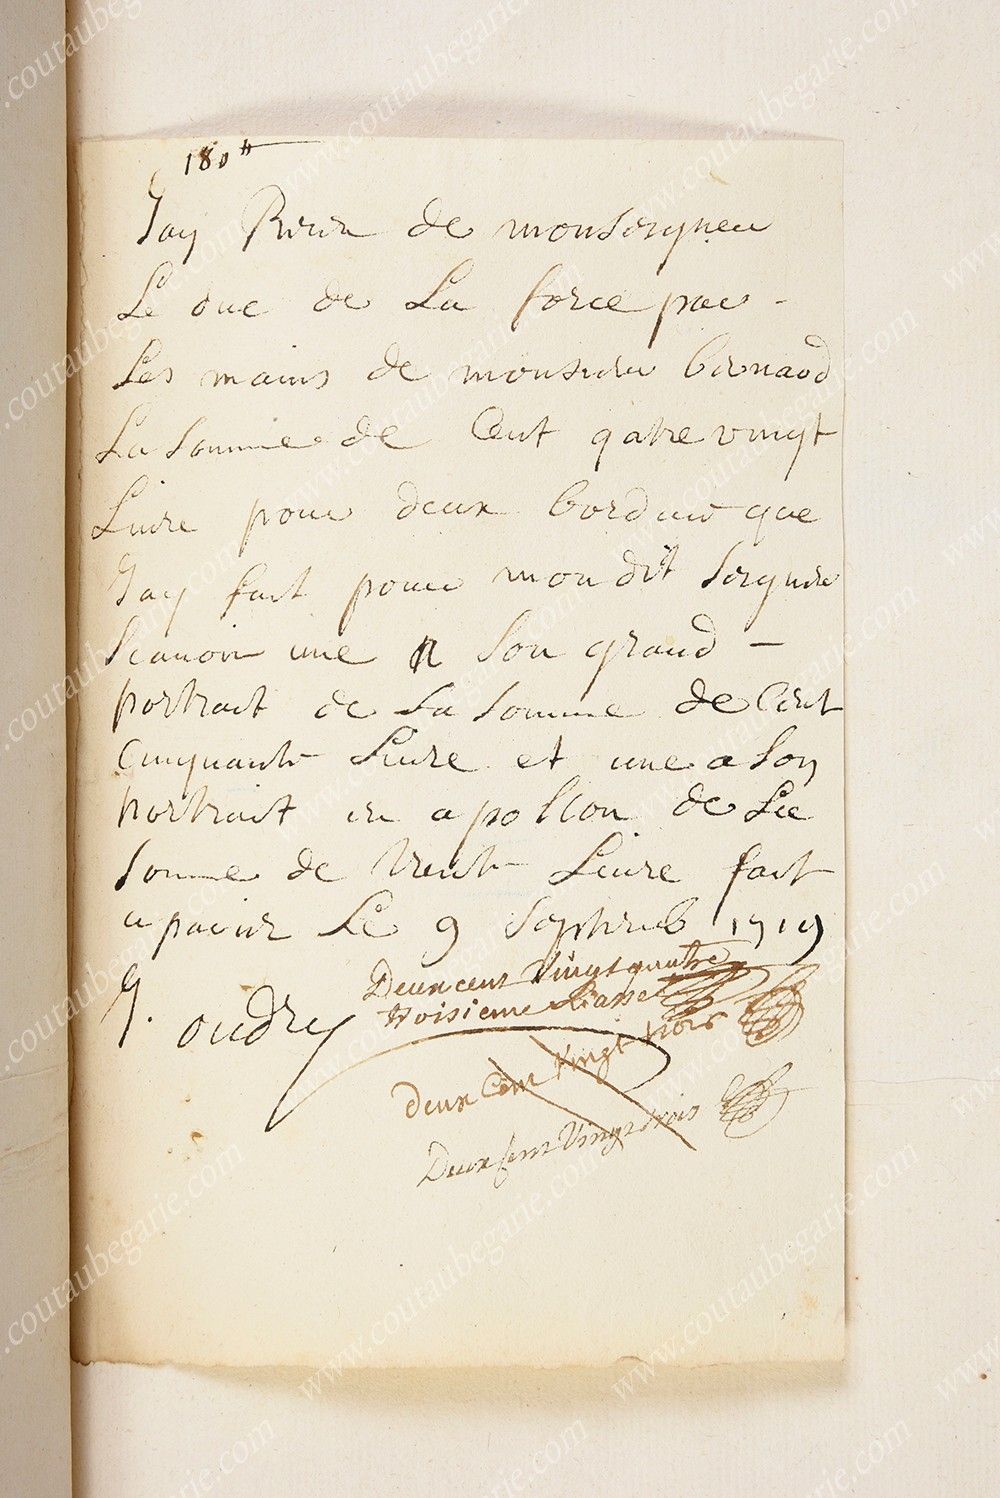 180tt
Jay Receu de monseigneu
Le duc de La force par -
Les mains de monsieur bernard
La somme de Cent qatre vingt
Livre pour deux bordure que
Jay fait pour mon dit seigneur
scauoir une a son grand -
portrait de La somme de Cent
Cinquante Livre et une a son
portrait en apollon de La
somme de trente Livre fait
a paris Le 9 Septemb 1719
J. oudry
Deux cent Vingt quatre
troisieme liasse
Deux Cent Vingt trois
Deux Cent Vingt trois
www.coutaubegarie.com